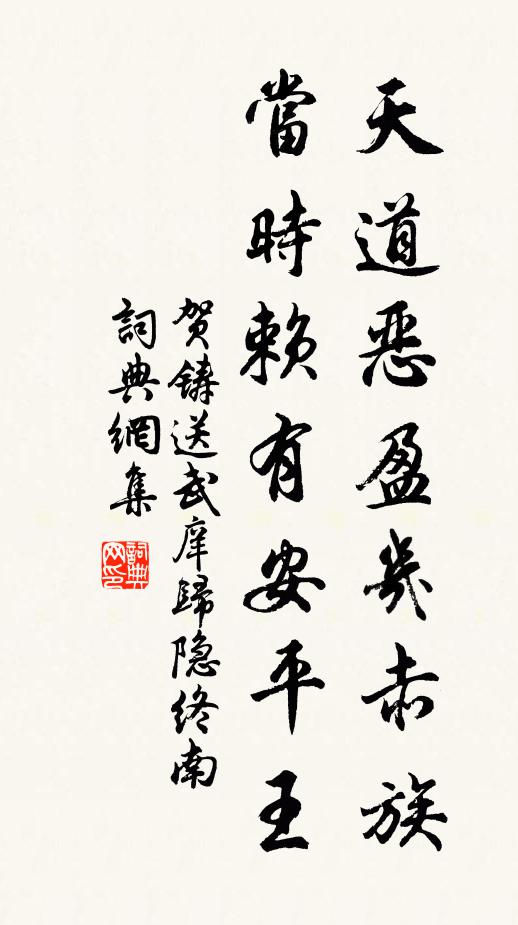 天道恶盈幾赤族
當時赖有安平王
贺鑄送武庠歸隐終南
詞典網集
詞典网印